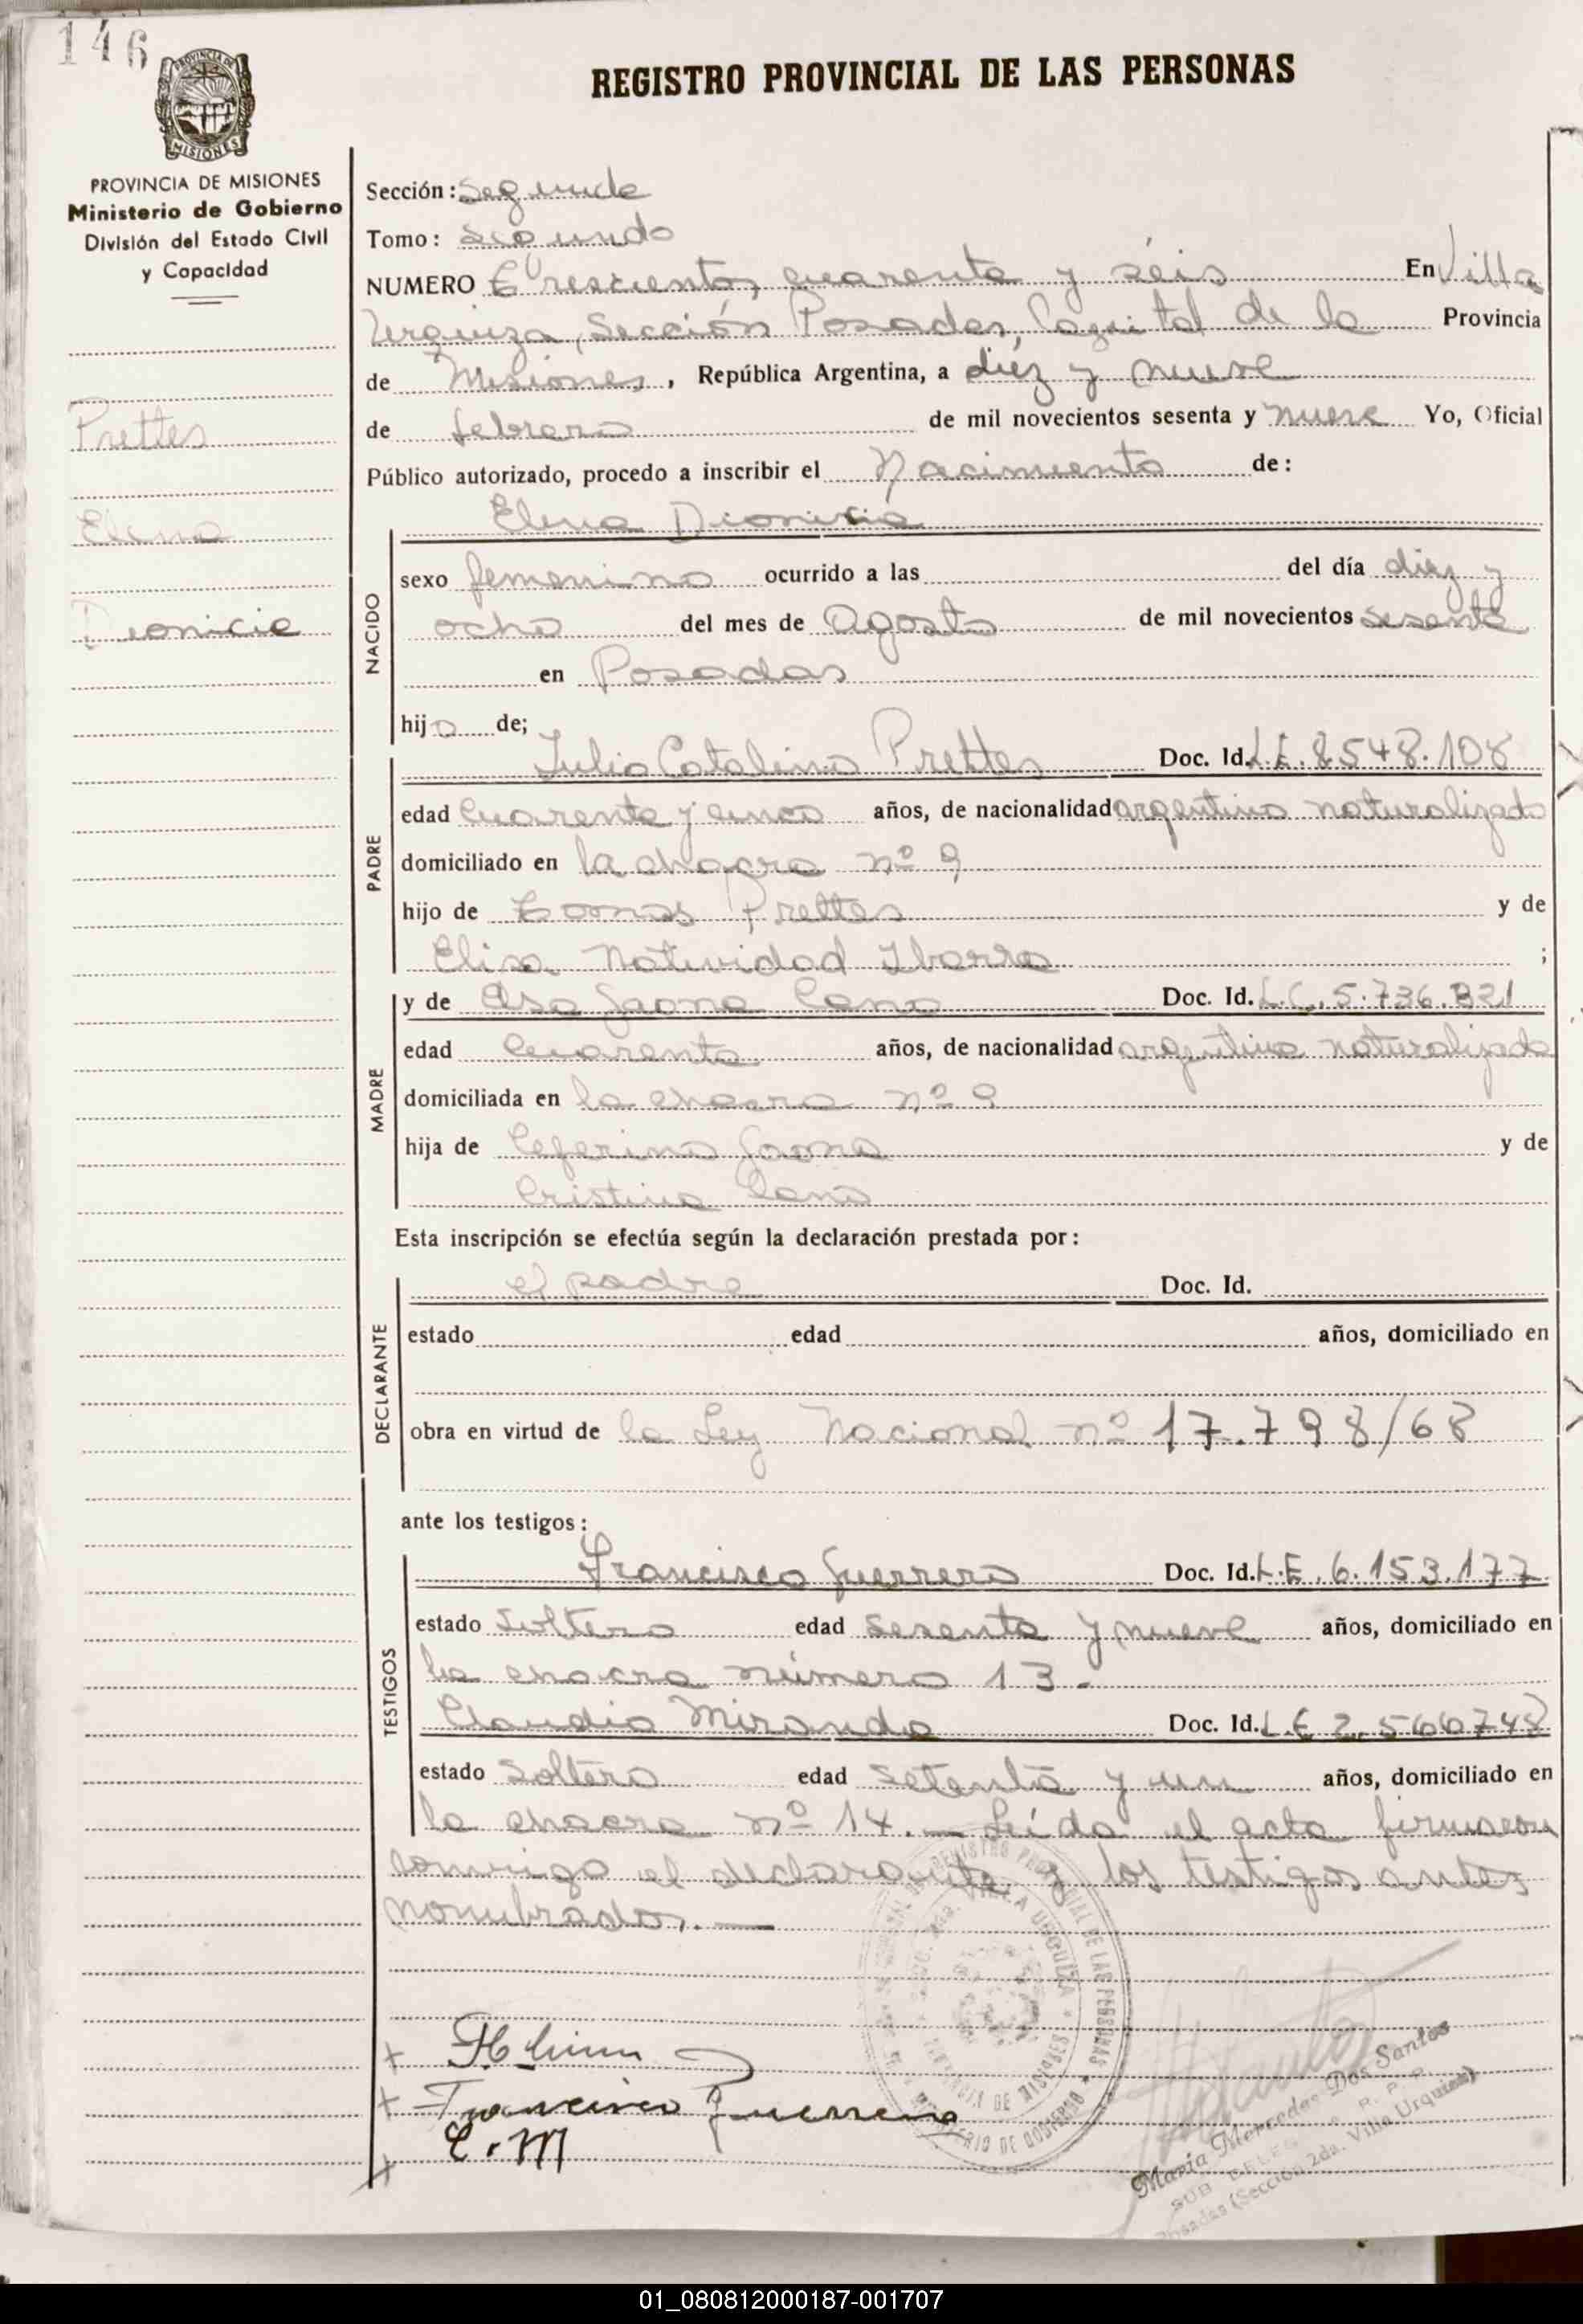 146
PROVINCIA DE
MISIONES
REGISTRO PROVINCIAL DE LAS PERSONAS
PROVINCIA DE MISIONES
Ministerio de Gobierno
División del Estado Civil
y Capacidad
Prettes
Elena
Dionicia
Sección: Segunda
Tomo: Segundo
NUMERO Trescientos cuarenta y séis En Villa
Urquiza, Sección Posadas, Capital de la Provincia
de Misiones, República Argentina, a diéz y nueve
de febrero de mil novecientos sesenta y nueve Yo, Oficial
Público autorizado, procedo a inscribir el Nacimiento de:
Elena Dionicia
NACIDO
sexo femenino ocurrido a las del día diez y
ocho del mes de Agosto de mil novecientos sesenta
en Posadas
hijo de;
PADRE
Julio Catalino Prettes Doc. Id. L.E. 8.548.108
edad Cuarenta y cinco años, de nacionalidad argentino naturalizado
domiciliado en la chacra nº 9
hijo de Tomas Prettes y de
Elisa Natividad Ibarra ;
MADRE
y de Gaona Cano Doc. Id. L.C. 5.736.821
edad Cuarenta años, de nacionalidad argentina naturalizada
domiciliada en la chacra nº 9
hija de Ceferino Gaona y de
Cristina Cano
Esta inscripción se efectúa según la declaración prestada por:
DECLARANTE
el padre Doc. Id.
estado edad años, domiciliado en
obra en virtud de la Ley Nacional nº 17.798/68
ante los testigos:
TESTIGOS
Francisco Guerrero Doc. Id. L.E. 6.153.177
estado Soltero edad sesenta y nueve años, domiciliado en
la chacra número 13.
Claudio Miranda Doc. Id. L.E 2.560748
estado Soltero edad setenta y un años, domiciliado en
la chacra nº 14.— Leída el acta firmaron
conmigo el declarante y los testigos antes
nombrados.—
Francisco Guerrero
C.M
MINISTERIO DE GOBIERNO
María Mercedes Dos Santos
SUB DELEG R. P. P.
Posadas (Sección 2da. Villa Urquiza)
01_080812000187-001707